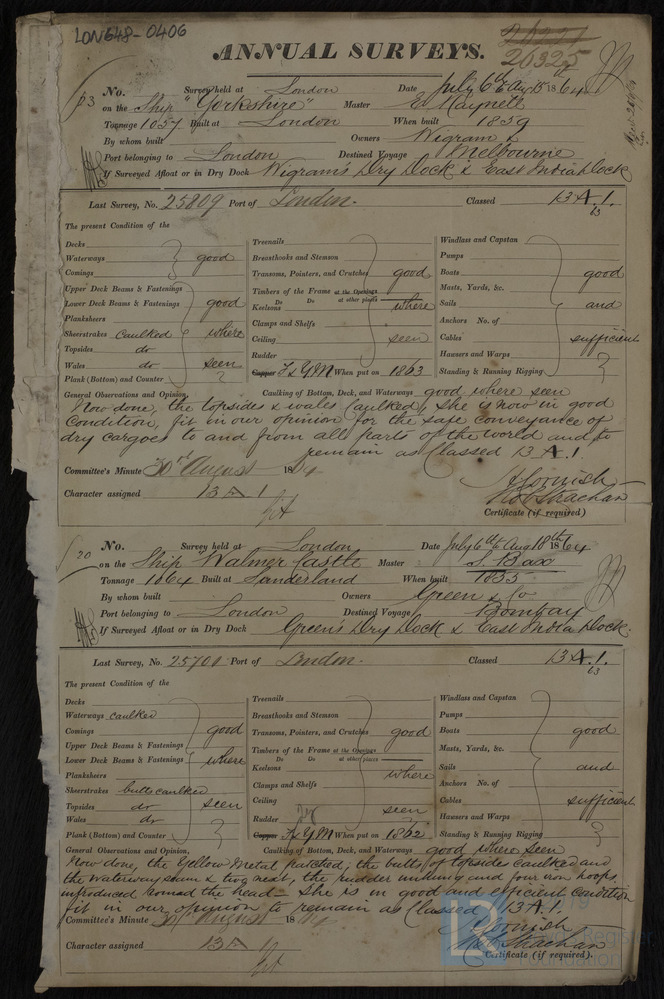 LON648-0406
ANNUAL SURVEYS.
26325
No. Survey held at London Date July 6th to Aug 15 1864
on the Ship "Yorkshire" Master
Tonnage 1057 Built at London When built 1859
By whom built Owners Wigram &
Port belonging to London Destined Voyage Melbourne
If Surveyed Afloat or in Dry Dock Wigram's Dry Dock & East India Dock
Last Survey, No. 25809 Port of London. Classed 13 A.1.
63
The present Condition of the
Decks
Waterways good
Comings
Upper Deck Beams & Fastenings
Lower Deck Beams & Fastenings good
Planksheers
Sheerstrakes caulked where
Topsides do
Wales do seen
Plank (Bottom) and Counter
Treenails
Breasthooks and Stemson
Transoms, Pointers, and Crutches good
Timbers of the Frame at the Openings
Do Do at other places
Keelsons where
Clamps and Shelfs
Ceiling seen
Rudder
Copper F & YM When put on 1863
Windlass and Capstan
Pumps
Boats good
Masts, Yards, &c.
Sails and
Anchors No. of
Cables sufficient
Hawsers and Warps
Standing & Running Rigging
General Observations and Opinion, Caulking of Bottom, Deck, and Waterways good where seen
Now done, the topsides & wales caulked, She is now in good
condition, fit in our opinion for the safe conveyance of
dry cargoes to and from all parts of the world and to
remain as Classed 13 A.1.
Committee's Minute 30th August 186
Character assigned 13 A 1
J Cornish
Strachan
Certificate (if required)
20
No. Survey held at London Date July 6th to Aug 18th 1864
on the Ship Walmer Castle Master S. Bax
Tonnage 1064 Built at Sunderland When built 1855
By whom built Owners Green & Co
Port belonging to London Destined Voyage Bombay
If Surveyed Afloat or in Dry Dock Green's Dry Dock & East India Dock.
Last Survey, No. 25701 Port of London. Classed 13 A.1.
63
The present Condition of the
Decks
Waterways caulked
Comings good
Upper Deck Beams & Fastenings
Lower Deck Beams & Fastenings where
Planksheers
Sheerstrakes butts caulked
Topsides do seen
Wales do
Plank (Bottom) and Counter
Treenails
Breasthooks and Stemson
Transoms, Pointers, and Crutches good
Timbers of the Frame at the Openings
Do Do at other places
Keelsons where
Clamps and Shelfs
Ceiling seen
Rudder
Copper F & YM When put on 1862
Windlass and Capstan
Pumps
Boats good
Masts, Yards, &c.
Sails and
Anchors No. of
Cables sufficient
Hawsers and Warps
Standing & Running Rigging
General Observations and Opinion, Caulking of Bottom, Deck, and Waterways good where seen
Now done, the Yellow Metal patched, the butts of topsides caulked and
the Waterway seam & two next, the rudder unhung and four iron hoops
introduced round the head - She is in good and efficient condition
fit in our opinion to remain as Classed 13 A.1.
Committee's Minute August 186
Character assigned 13 A
J Cornish
Strachan
Certificate (if required).